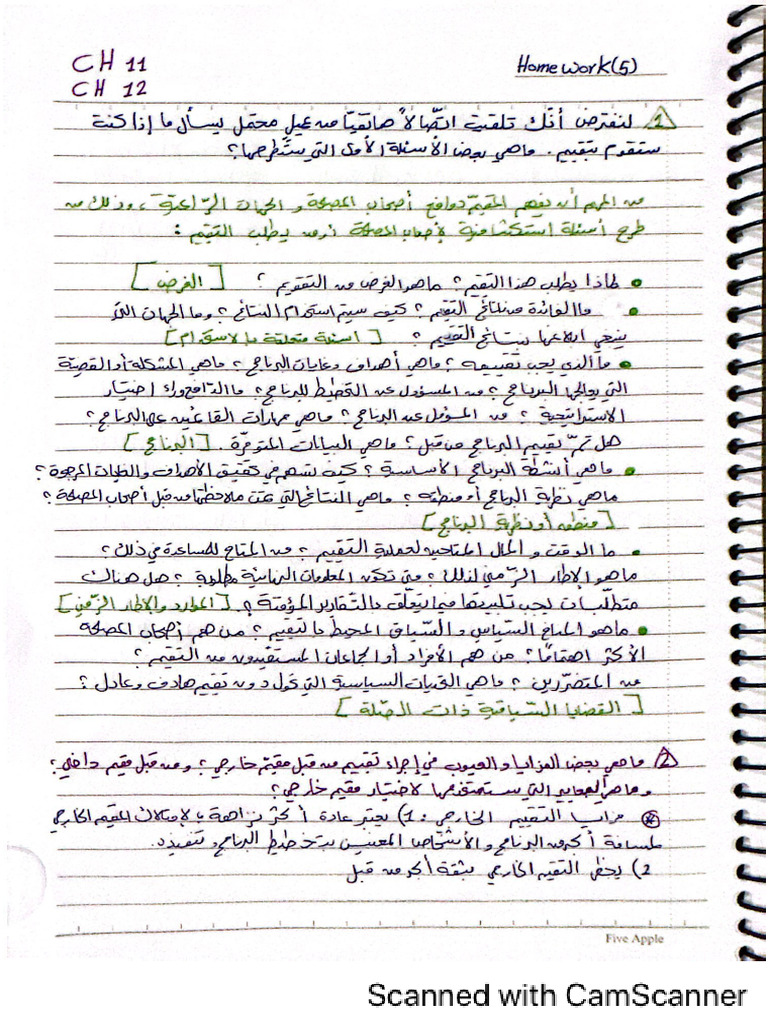 CH 11
CH 12
Homework(5)
1 لنفترض أنّك تلقيت اتّصالاً هاتفيًا من عميل محتمل يسأل ما إذا كنت
ستقوم بتقييم. ماهي بعض الأسئلة الأولى التي ستطرحها؟
من المهم أن يفهم المقيّم دوافع أصحاب المصلحة و الجهات الرّاعية، وذلك من
طرح أسئلة استكشافية لأصحاب المصلحة أو من يطلب التقييم:
• لماذا يطلب هذا التقييم؟ ماهو الغرض من التقويم؟ [الغرض]
• ما الفائدة من نتائج التقييم؟ كيف سيتم استخدام النتائج؟ وما الجهات التي
ينبغي ابلاغها بنتائج التقييم؟ [اسئلة متعلقة بالاستخدام]
• ما الذي يجب تقييمه؟ ماهي أهداف وغايات البرنامج؟ ماهي المشكلة أو القضية
التي يعالجها البرنامج؟ من المسؤول عن التخطيط للبرنامج؟ ما الدافع وراء اختيار
الاستراتيجية؟ من المسؤول عن البرنامج؟ ماهي مهارات القائمين على البرنامج؟
هل تمّ تقييم البرنامج من قبل؟ ماهي البيانات المتوفّرة. [البرنامج]
• ماهي أنشطة البرنامج الأساسية؟ كيف تسهم في تحقيق الأهداف والغايات المرجوة؟
ماهي نظرية البرنامج أو منطقه؟ ماهي النتائج التي تمت ملاحظتها من قبل أصحاب المصلحة؟
[منطقه أو نظرية البرنامج]
• ما الوقت و المال المتاحين لعملية التقييم؟ من المتاح للمساعدة في ذلك؟
ماهو الإطار الزّمني لذلك؟ متى تكون المعلومات النهائية مطلوبة؟ هل هناك
متطلّبات يجب تلبيتها فيما يتعلّق بالتّقارير المؤقتة؟. [الموارد والإطار الزّمني]
• ماهو المناخ السّياسي و السّياق المحيط بالتقييم؟ من هم أصحاب المصلحة
الأكثر اهتمامًا؟ من هم الأفراد أو الجماعات المستفيدون من التقييم؟
من المتضرّرين؟ ماهي القوى السياسية التي تحول دون تقييم هادف وعادل؟
[القضايا السّياقية ذات الصّلة]
2 ماهي بعض المزايا و العيوب في إجراء تقييم من قبل مقيّم خارجي؟ ومن قبل مقيم داخلي؟
وماهي المعايير التي ستستخدمها لاختيار مقيم خارجي؟
* مزايا التقييم الخارجي: 1) يعتبر عادة أكثر نزاهة بالامتلاك المقيم الخارجي
لمسافة أكبر من البرنامج والأشخاص المعنيين بتخطيط البرنامج وتنفيذه.
2) يحظى التقيم الخارجي بثقة أكبر من قبل
Five Apple
Scanned with CamScanner